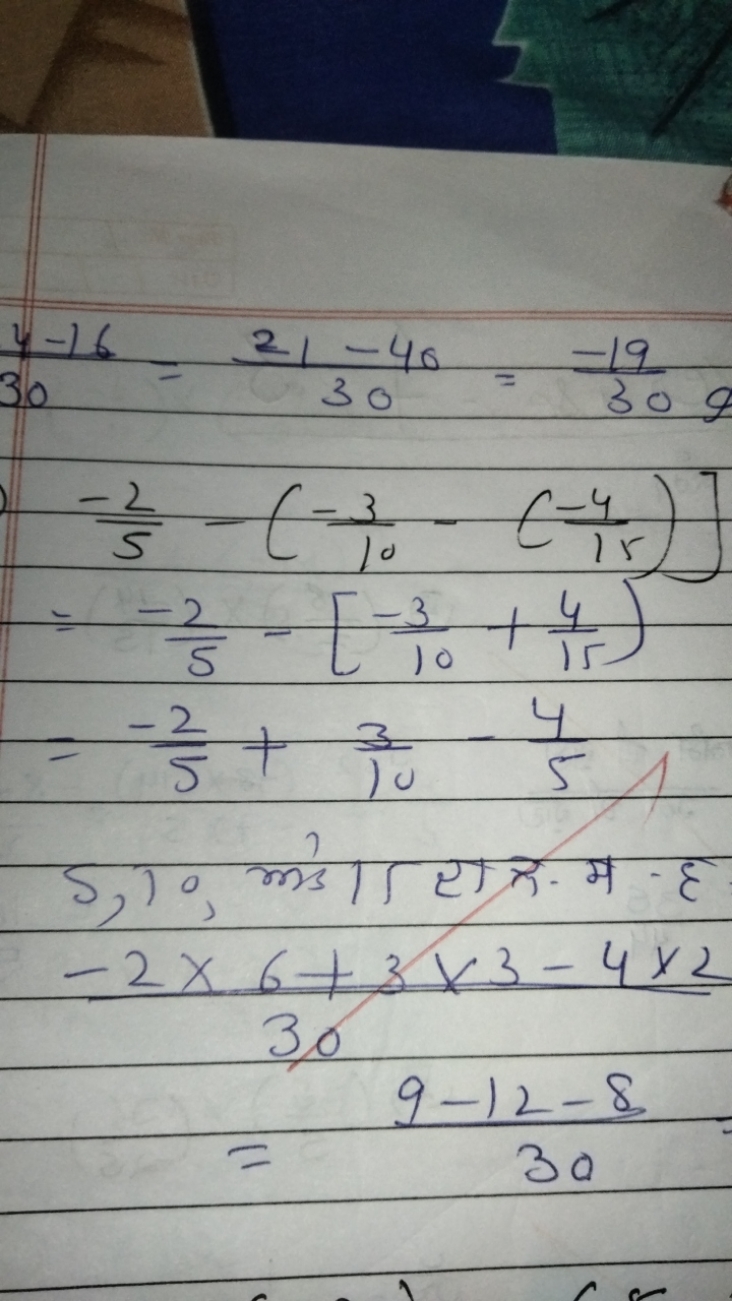 4-16/30 = 21-40/30 = -19/30
) -2/5 - (-3/10 - (-4/15)]
= -2/5 - [-3/10 + 4/15)
= -2/5 + 3/10 - 4/5
5, 10, 15 ਦਾ ਲ. ਸ. ਹ
-2 × 6 + 3 × 3 - 4 × 2
30
= 9-12-8/30 =